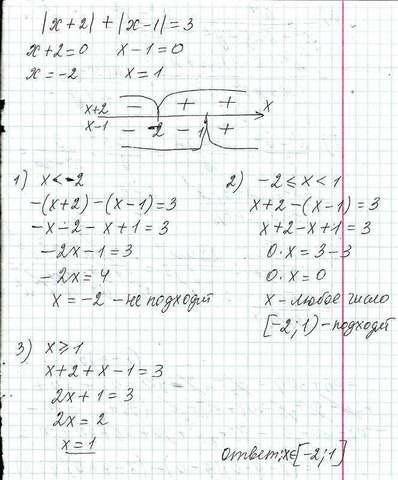 |x+2|+|x-1|=3
x+2=0 x-1=0
x=-2 x=1
x+2 - + + x
x-1 - -2 - 1 +
1) x<-2
-(x+2)-(x-1)=3
-x-2-x+1=3
-2x-1=3
-2x=4
x=-2 - не подходит
2) -2≤x<1
x+2-(x-1)=3
x+2-x+1=3
0·x=3-3
0·x=0
x-любое число
[-2;1)-подходит
3) x≥1
x+2+x-1=3
2x+1=3
2x=2
x=1
ответ: x∈[-2;1]